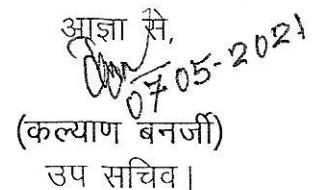 आज्ञा से,
07-05-2021
(कल्याण बनर्जी)
उप सचिव।